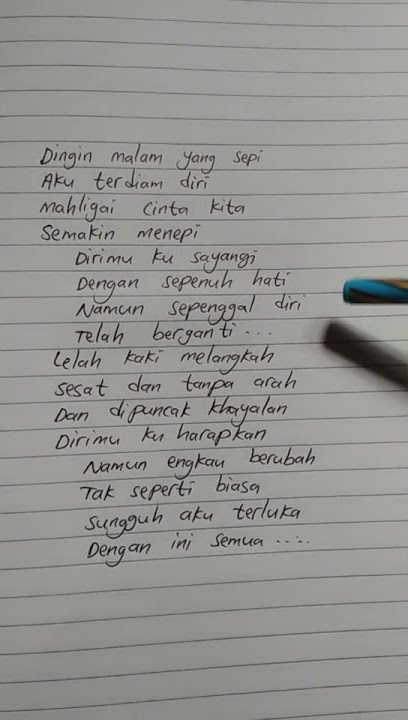 Dingin malam yang sepi
Aku terdiam diri
Mahligai cinta kita
Semakin menepi
Dirimu ku sayangi
Dengan sepenuh hati
Namun sepenggal diri
Telah berganti...
Lelah kaki melangkah
Sesat dan tanpa arah
Dan dipuncak khayalan
Dirimu ku harapkan
Namun engkau berubah
Tak seperti biasa
Sungguh aku terluka
Dengan ini semua.....